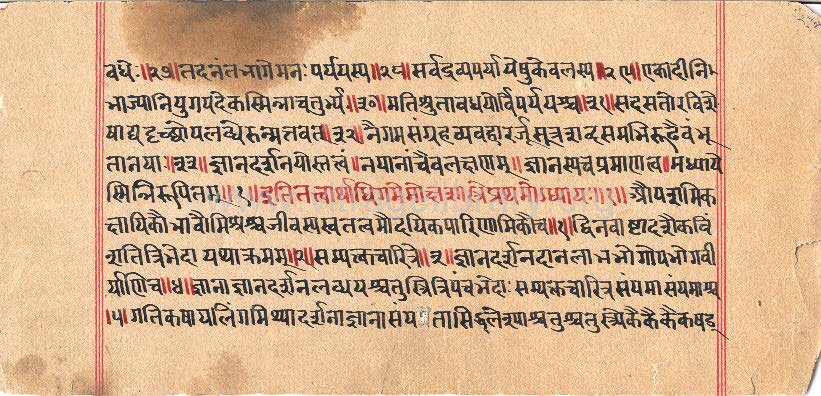 वधेः॥२७॥तदनंतभागेमनःपर्ययस्य॥२८॥सर्वद्रव्यपर्यायेषुकेवलस्य॥२९॥एकादीनि
भाज्यानियुगपदेकस्मिन्नाचतुर्भ्यः॥३०॥मतिश्रुतावधयोर्विपर्ययश्च॥३१॥सदसतोरविशे
षाद्यदृच्छोपलब्धेरुन्मत्तवत्॥३२॥नैगमसंग्रहव्यवहारर्जुसूत्रशब्दसमभिरूढैवंभू
तानयाः॥३३॥ज्ञानदर्शनयोस्तत्वं॥नयानांचैवलक्षणम्॥ज्ञानस्यचप्रमाणत्व॥मध्याये
स्मिन्निरूपितम्॥१॥इतितत्वार्थाधिगमेमोक्षशास्त्रेप्रथमोध्यायः॥१॥औपशमिक
क्षायिकौभावौमिश्रश्चजीवस्यस्वतत्वमौदयिकपारिणामिकौच॥१॥द्विनवाष्टादशैकविं
शतित्रिभेदायथाक्रमम्॥२॥सम्यक्तचारित्रे॥३॥ज्ञानदर्शनदानलाभभोगोपभोगवी
र्याणिच॥४॥ज्ञानाज्ञानदर्शनलब्धयश्चतुस्त्रित्रिपंचभेदाःसम्यक्तचारित्रसंयमासंयमाश्च
।५॥गतिकषायलिंगमिथ्यादर्शनाज्ञानासंय तासिद्धलेश्याश्चतुश्चतुस्त्र्येकैकैकैकषड्